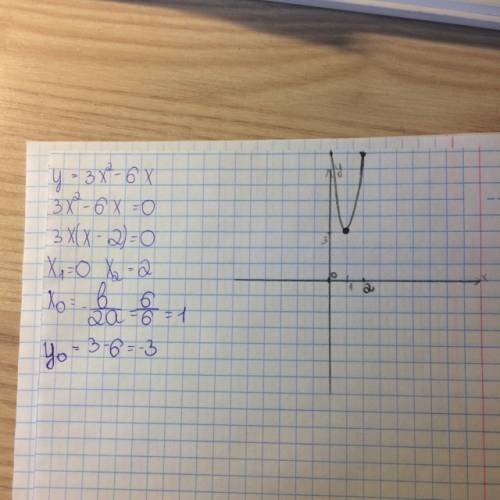 y = 3x² - 6x
3x² - 6x = 0
3x(x - 2) = 0
x₁ = 0 x₂ = 2
x₀ = -b/2a = 6/6 = 1
y₀ = 3 - 6 = -3
y
3
0 1 2 x